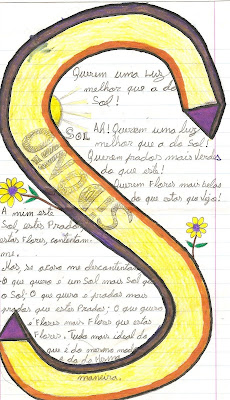 Querem uma Luz
melhor que a do
Sol!
Sol
Ah! Querem uma luz
melhor que a do Sol!
Querem prados mais verdes
do que este!
Querem Flores mais belas
do que estas que vejo!
SINÓNIMO
A mim este
Sol, estes Prados,
estas Flores, contentam-
me.
Mas, se acaso me descontentam,
O que quero é um Sol mais Sol que
o Sol; O que quero é prados mais
prados que estes Prados; O que quero
é Flores mais Flores que estas
Flores. Tudo mais ideal do
que é do mesmo modo
e da mesma
maneira.